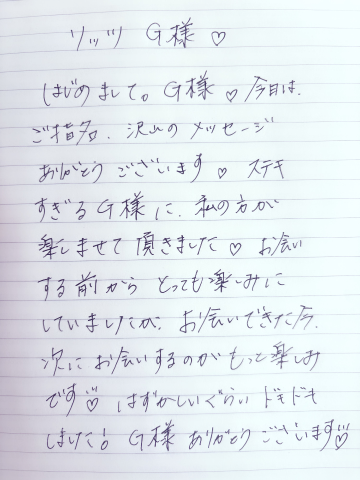 リッツ G様♡
はじめまして。G様♡今日は、
ご指名、沢山のメッセージ
ありがとうございます♡ ステキ
すぎるG様に、私の方が
楽しませて頂きました♡ お会い
する前からとっても楽しみに
していましたが、お会いできた今、
次にお会いするのがもっと楽しみ
です♡ はずかしいぐらいドキドキ
しました! G様ありがとうございます♡